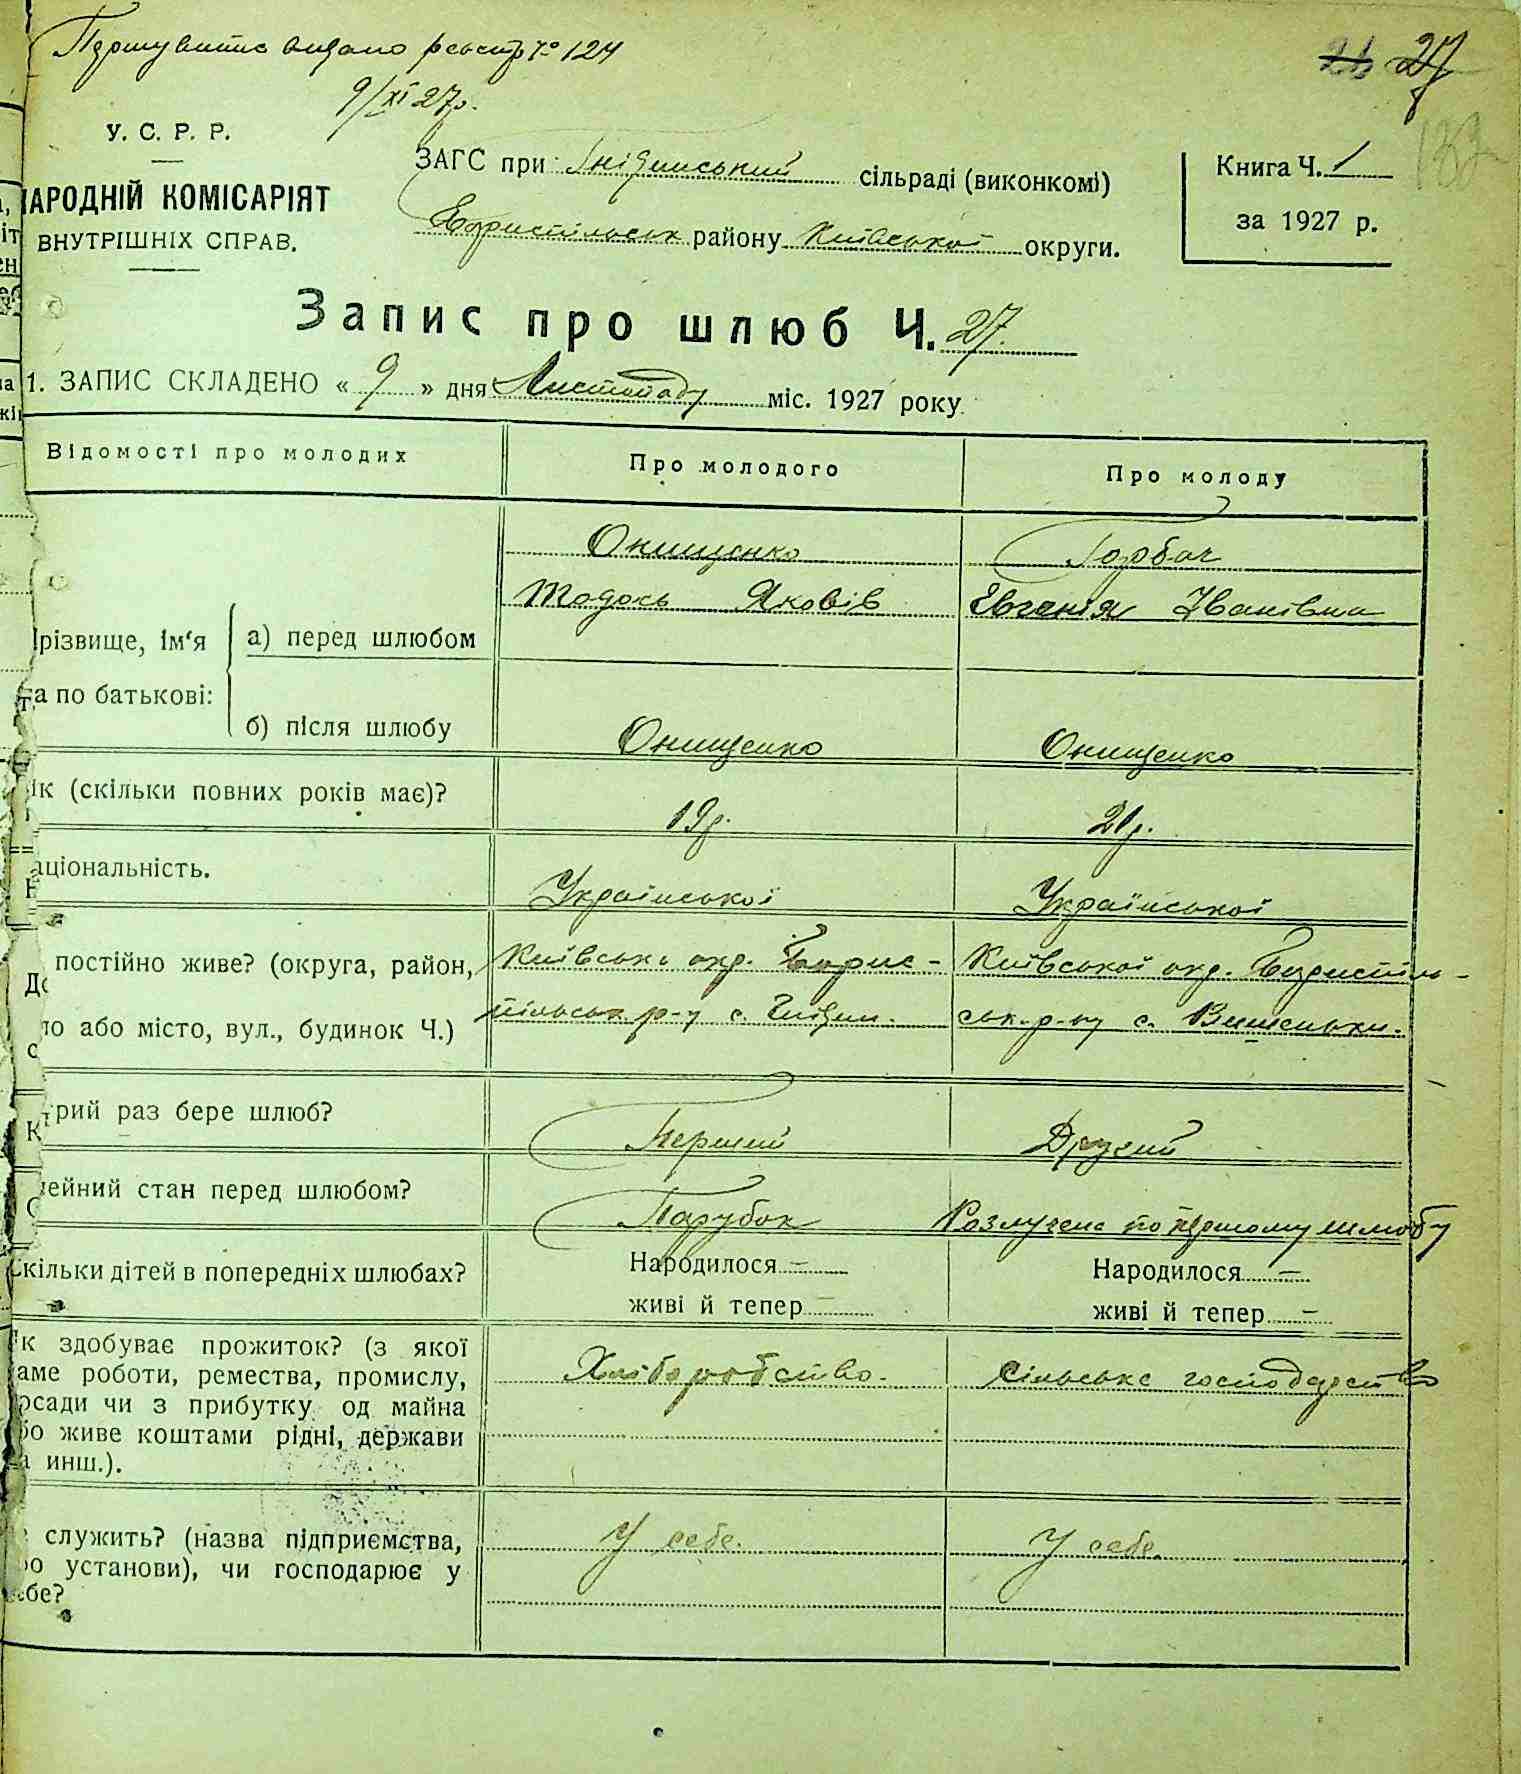 видано реєстр № 124
26 27
9/XI 27р.
133
У. С. Р. Р.
НАРОДНІЙ КОМІСАРІЯТ
ВНУТРІШНІХ СПРАВ.
ЗАГС при Гнідинський сільраді (виконкомі)
Бориспільськ району Київської округи.
Книга Ч. 1
за 1927 р.
Запис про шлюб Ч. 27.
1. ЗАПИС СКЛАДЕНО « 9 » дня Листопаду міс. 1927 року
Відомості про молодих
Про молодого
Про молоду
Онищенко
Горбач
Тодось Яковів
Евгенія Іванівна
Прізвище, ім'я
та по батькові:
а) перед шлюбом
б) після шлюбу
Онищенко
Онищенко
ік (скільки повних років має)?
19р.
21р.
Національність.
Української
Української
Де постійно живе? (округа, район,
село або місто, вул., будинок Ч.)
Київська окр. Борис-
пільськ. р-у с. Гнідин.
Київської окр. Бориспіль-
ськ. р-ну с. Вишеньки.
Котрий раз бере шлюб?
Перший
Другий
Сімейний стан перед шлюбом?
Парубок
Розлучена по першому шлюбу
Скільки дітей в попередніх шлюбах?
Народилося —
живі й тепер —
Народилося —
живі й тепер —
Як здобуває прожиток? (з якої
саме роботи, ремества, промислу,
посади чи з прибутку од майна
або живе коштами рідні, держави
та инш.).
Хліборобство.
Сільське господарство
Де служить? (назва підприємства,
або установи), чи господарює у
себе?
У себе.
У себе.